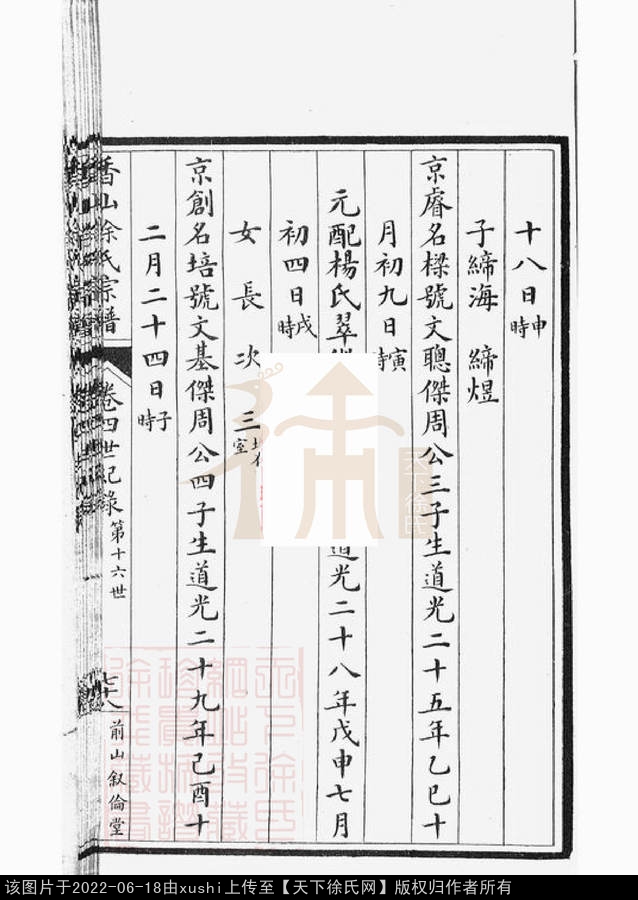 十八日申時
子締海 締煜
京睿名樑號文聰傑周公三子生道光二十五年乙巳十
月初九日寅時
元配楊氏翠 道光二十八年戊申七月
初四日戌時
女長 次 三 室
京創名培號文基傑周公四子生道光二十九年己酉十
二月二十四日子時
香山徐氏宗譜 卷四世紀錄 第十六世 七十八 前山叙倫堂
徐
该图片于2022-06-18由xushi上传至【天下徐氏网】版权归作者所有